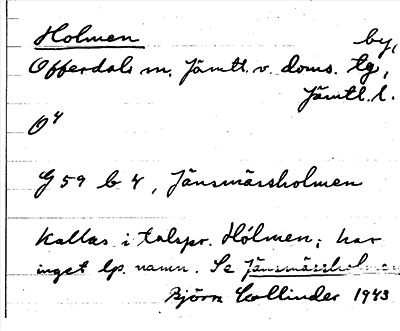 Holmen by,
Offerdals sn. Jämtl. v. doms. tg,
Jämtl. l.
O⁴
G 59 b 4, Jänsmässholmen
Kallas i talspr. Hólmen; har
inget lp. namn. Se Jänsmässholmen
Björn Collinder 1943